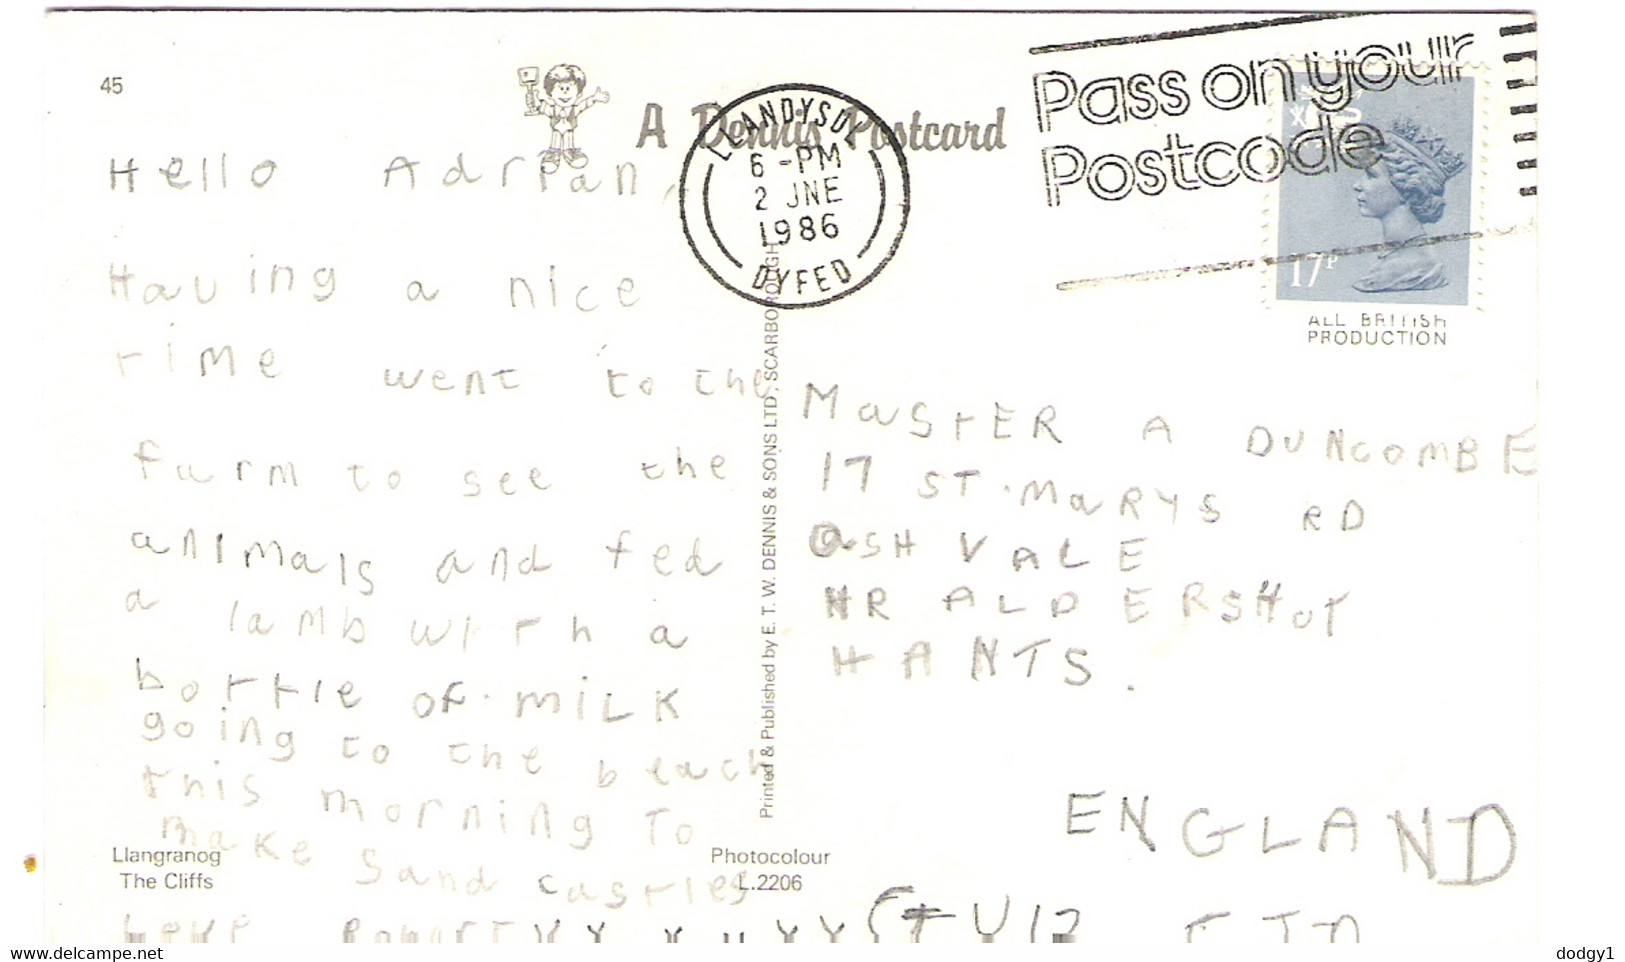 45
A Dennis Postcard
LLANDYSUL
6 -PM
2 JNE
1986
DYFED
Pass on your
Postcode
17P
ALL BRITISH
PRODUCTION
Hello Adrian,
Having a nice
time went to the
farm to see the
animals and fed
a lamb with a
bottle of. MiLK
going to the beach
this morning To
make Sand castles
Love Robert
Printed & Published by E. T. W. DENNIS & SONS LTD., SCARBOROUGH
MasTER A DUNCOMBE
17 ST. MaRYS RD
aSH VALE
NR ALDERSHOT
HANTS.
ENGLAND
Llangranog
The Cliffs
Photocolour
L.2206
delcampe.net
dodgy1